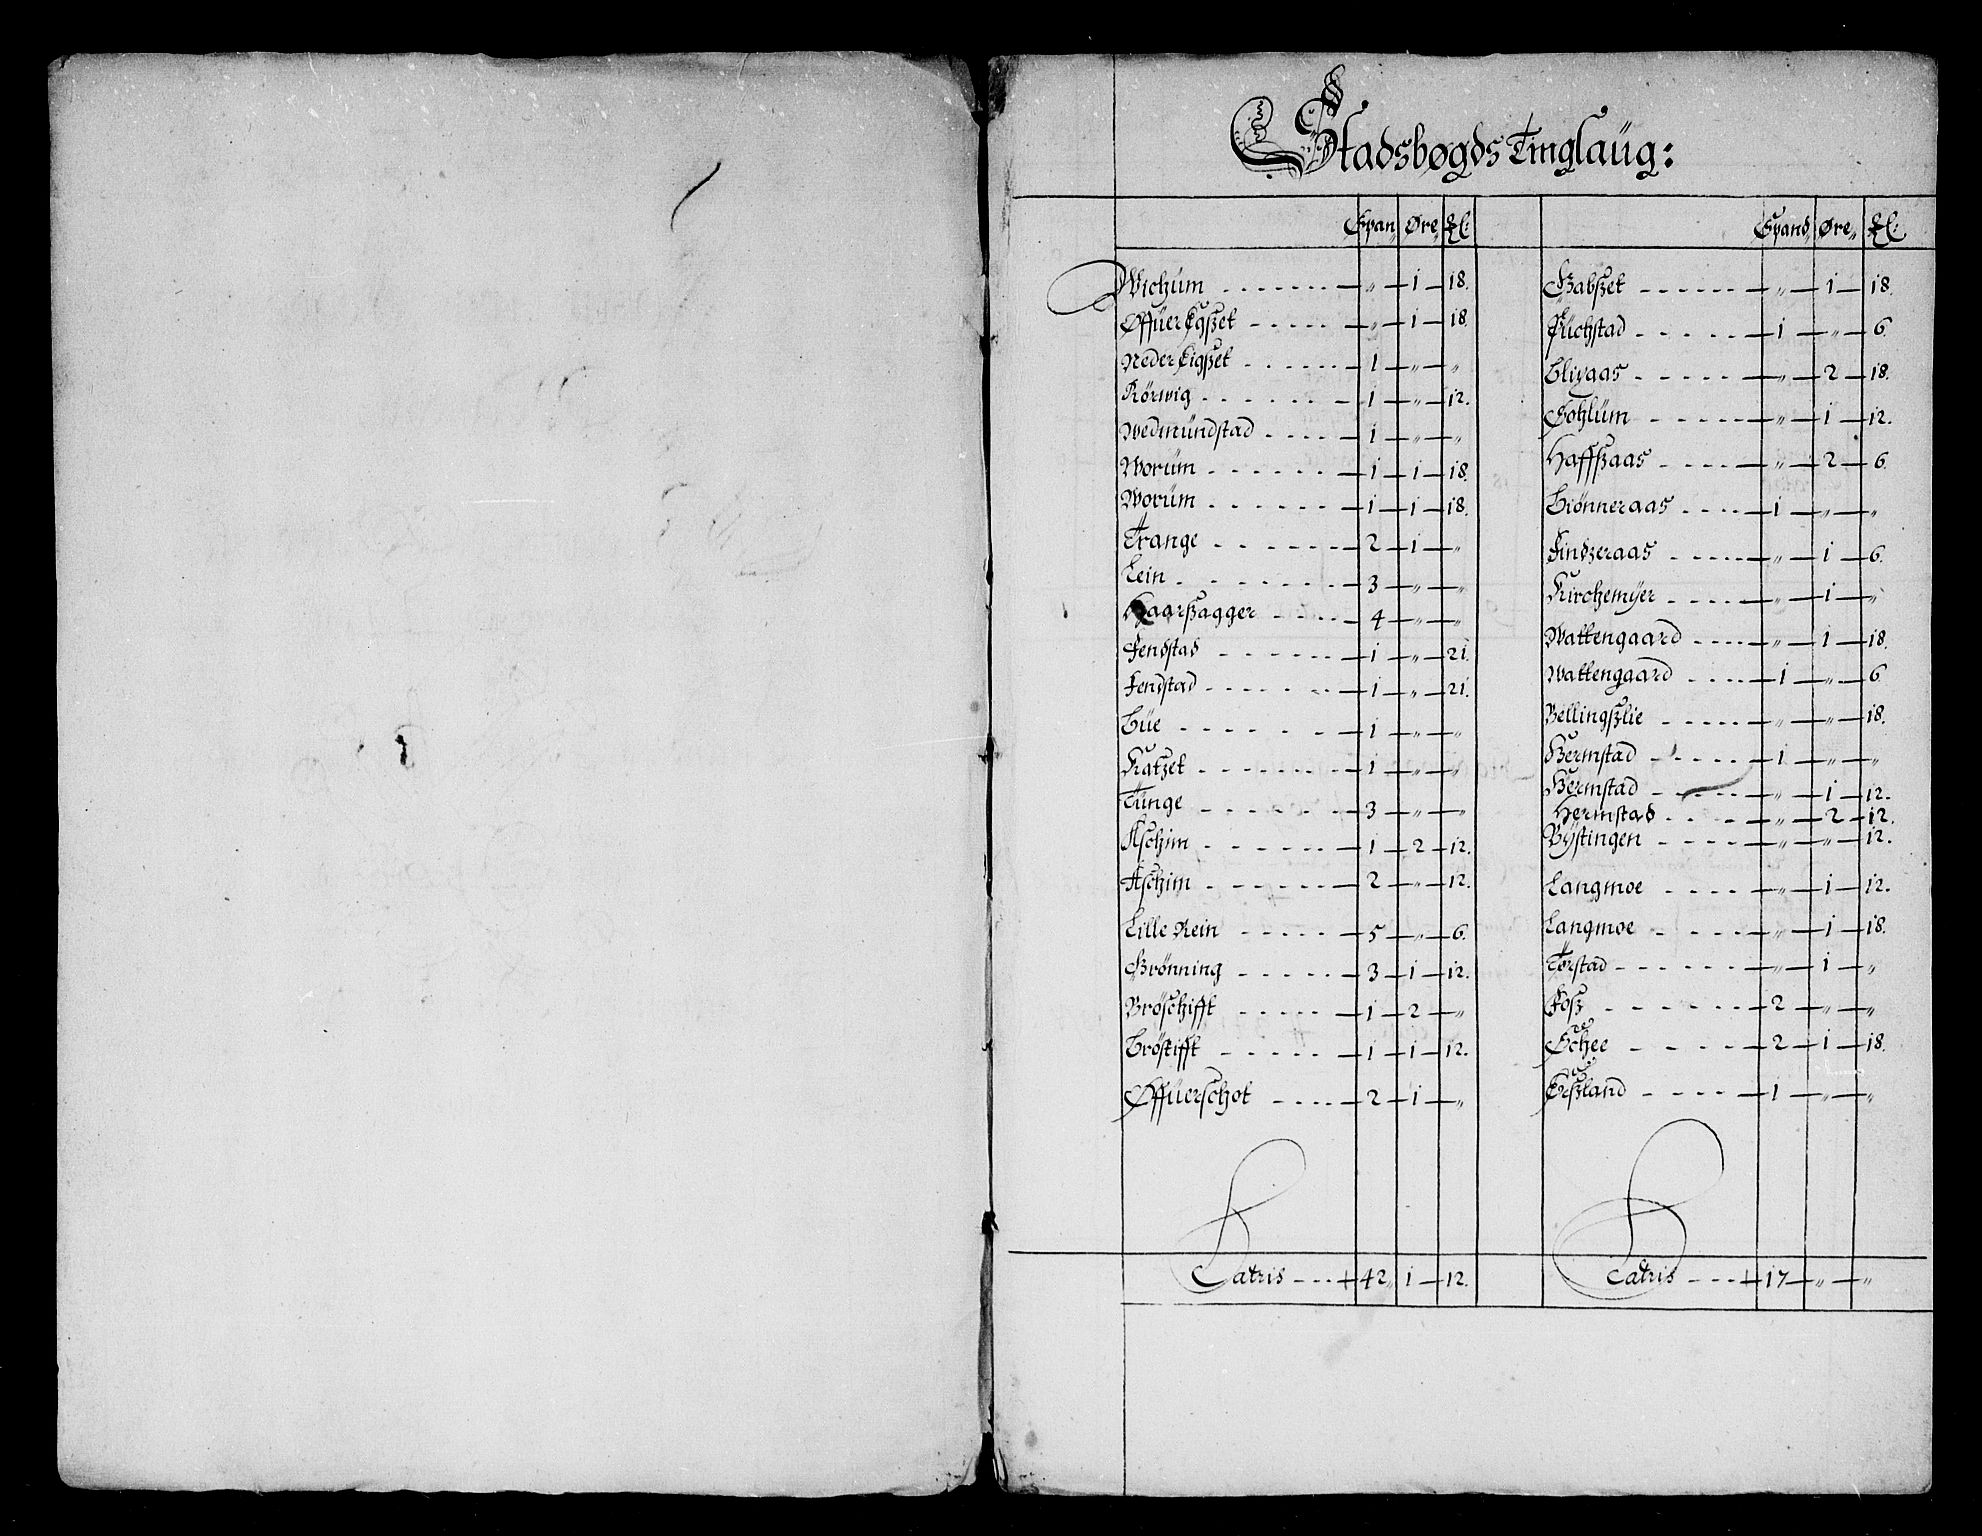 Stadsbøgds Tinglaüg:
Span„ Øre„ ₰l:
Wichüm - - - - „ — 1 — 18.
Øffüer Egszet - - - - „ — 1 — 18.
Neder Eigszet - - - - 1 — „ — „
Rörwig - - - - 1 — „ — 12.
Wedmündstad - - - - 1 — „ — „
Worüm - - - - 1 — 1 — 18.
Worüm - - - - 1 — 1 — 18.
Trange - - - - 2 — 1 — „
Lein - - - - 3 — „ — „
Haarszagger - - - - 4 — „ — „
Fendstad - - - - 1 — „ — 21.
Fendstad - - - - 1 — „ — 21.
Büe - - - - 1 — „ — „
Ratzet - - - - 1 — „ — „
Tünge - - - - 3 — „ — „
Aschim - - - - 1 — 2 — 12.
Aschim - - - - 2 — „ — 12.
Lille Rein - - - - 5 — „ — 6.
Grønning - - - - 3 — 1 — 12.
Bröschifft - - - - 1 — 2 — „
Bröskifft - - - - 1 — 1 — 12.
Øffüerschot - - - - 2 — 1 — „
Latris - - - 42„ 1 — 12.
Spand„ Øre„ ₰l:
Habszet - - - - „ — 1 — 18.
Rüchstad - - - - 1 — „ — 6
Bliyaas - - - - „ — 2 — 18.
Sohlüm - - - - „ — 1 — 12.
Haffszaas - - - - „ — 2 — 6.
Biönneraas - - - - 1 — „ — „
Findzeraas - - - - „ — 1 — 6.
Kirchemÿer - - - - „ — 1 — „
Wattengaard - - - - „ — 1 — 18.
Wattengaard - - - - 1 — „ — 6
Bellingszlie - - - - „ — „ — 18.
Hermstad - - - - 1 — „ — „
Hermstad - - - - „ — 1 — 12.
Hermstad - - - - „ — 2 — 12.
Bÿstingen - - - - „ — „ — 12.
Langmoe - - - - „ — 1 — 12.
Langmoe - - - - „ — 1 — 18.
Torstad - - - - „ — 1 — „
Fosz - - - - 2 — „ — „
Schee - - - - 2 — 1 — 18.
Erszland - - - - 1 — „ — „
Latris - - - 17 — „ — „